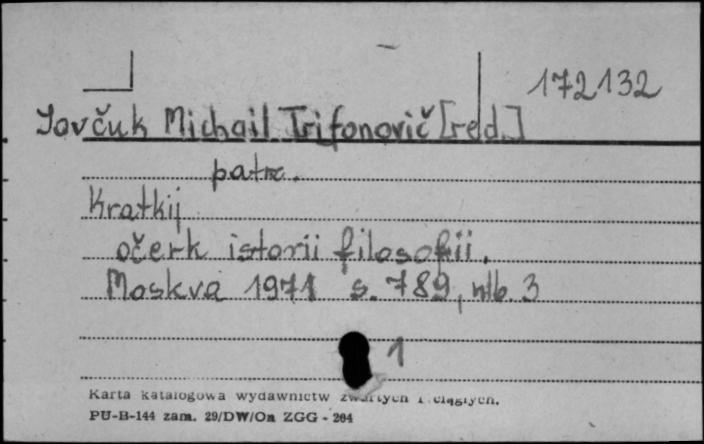 172132
Jovčuk Michail Trifonovič [red.]
patrz.
Kratkij
očerk istorii filosofii.
Moskva 1971 s. 789, nlb. 3
1
Karta katalogowa wydawnictw zwartych i ciągłych.
PU-B-144 zam. 29/DW/On ZGG - 204